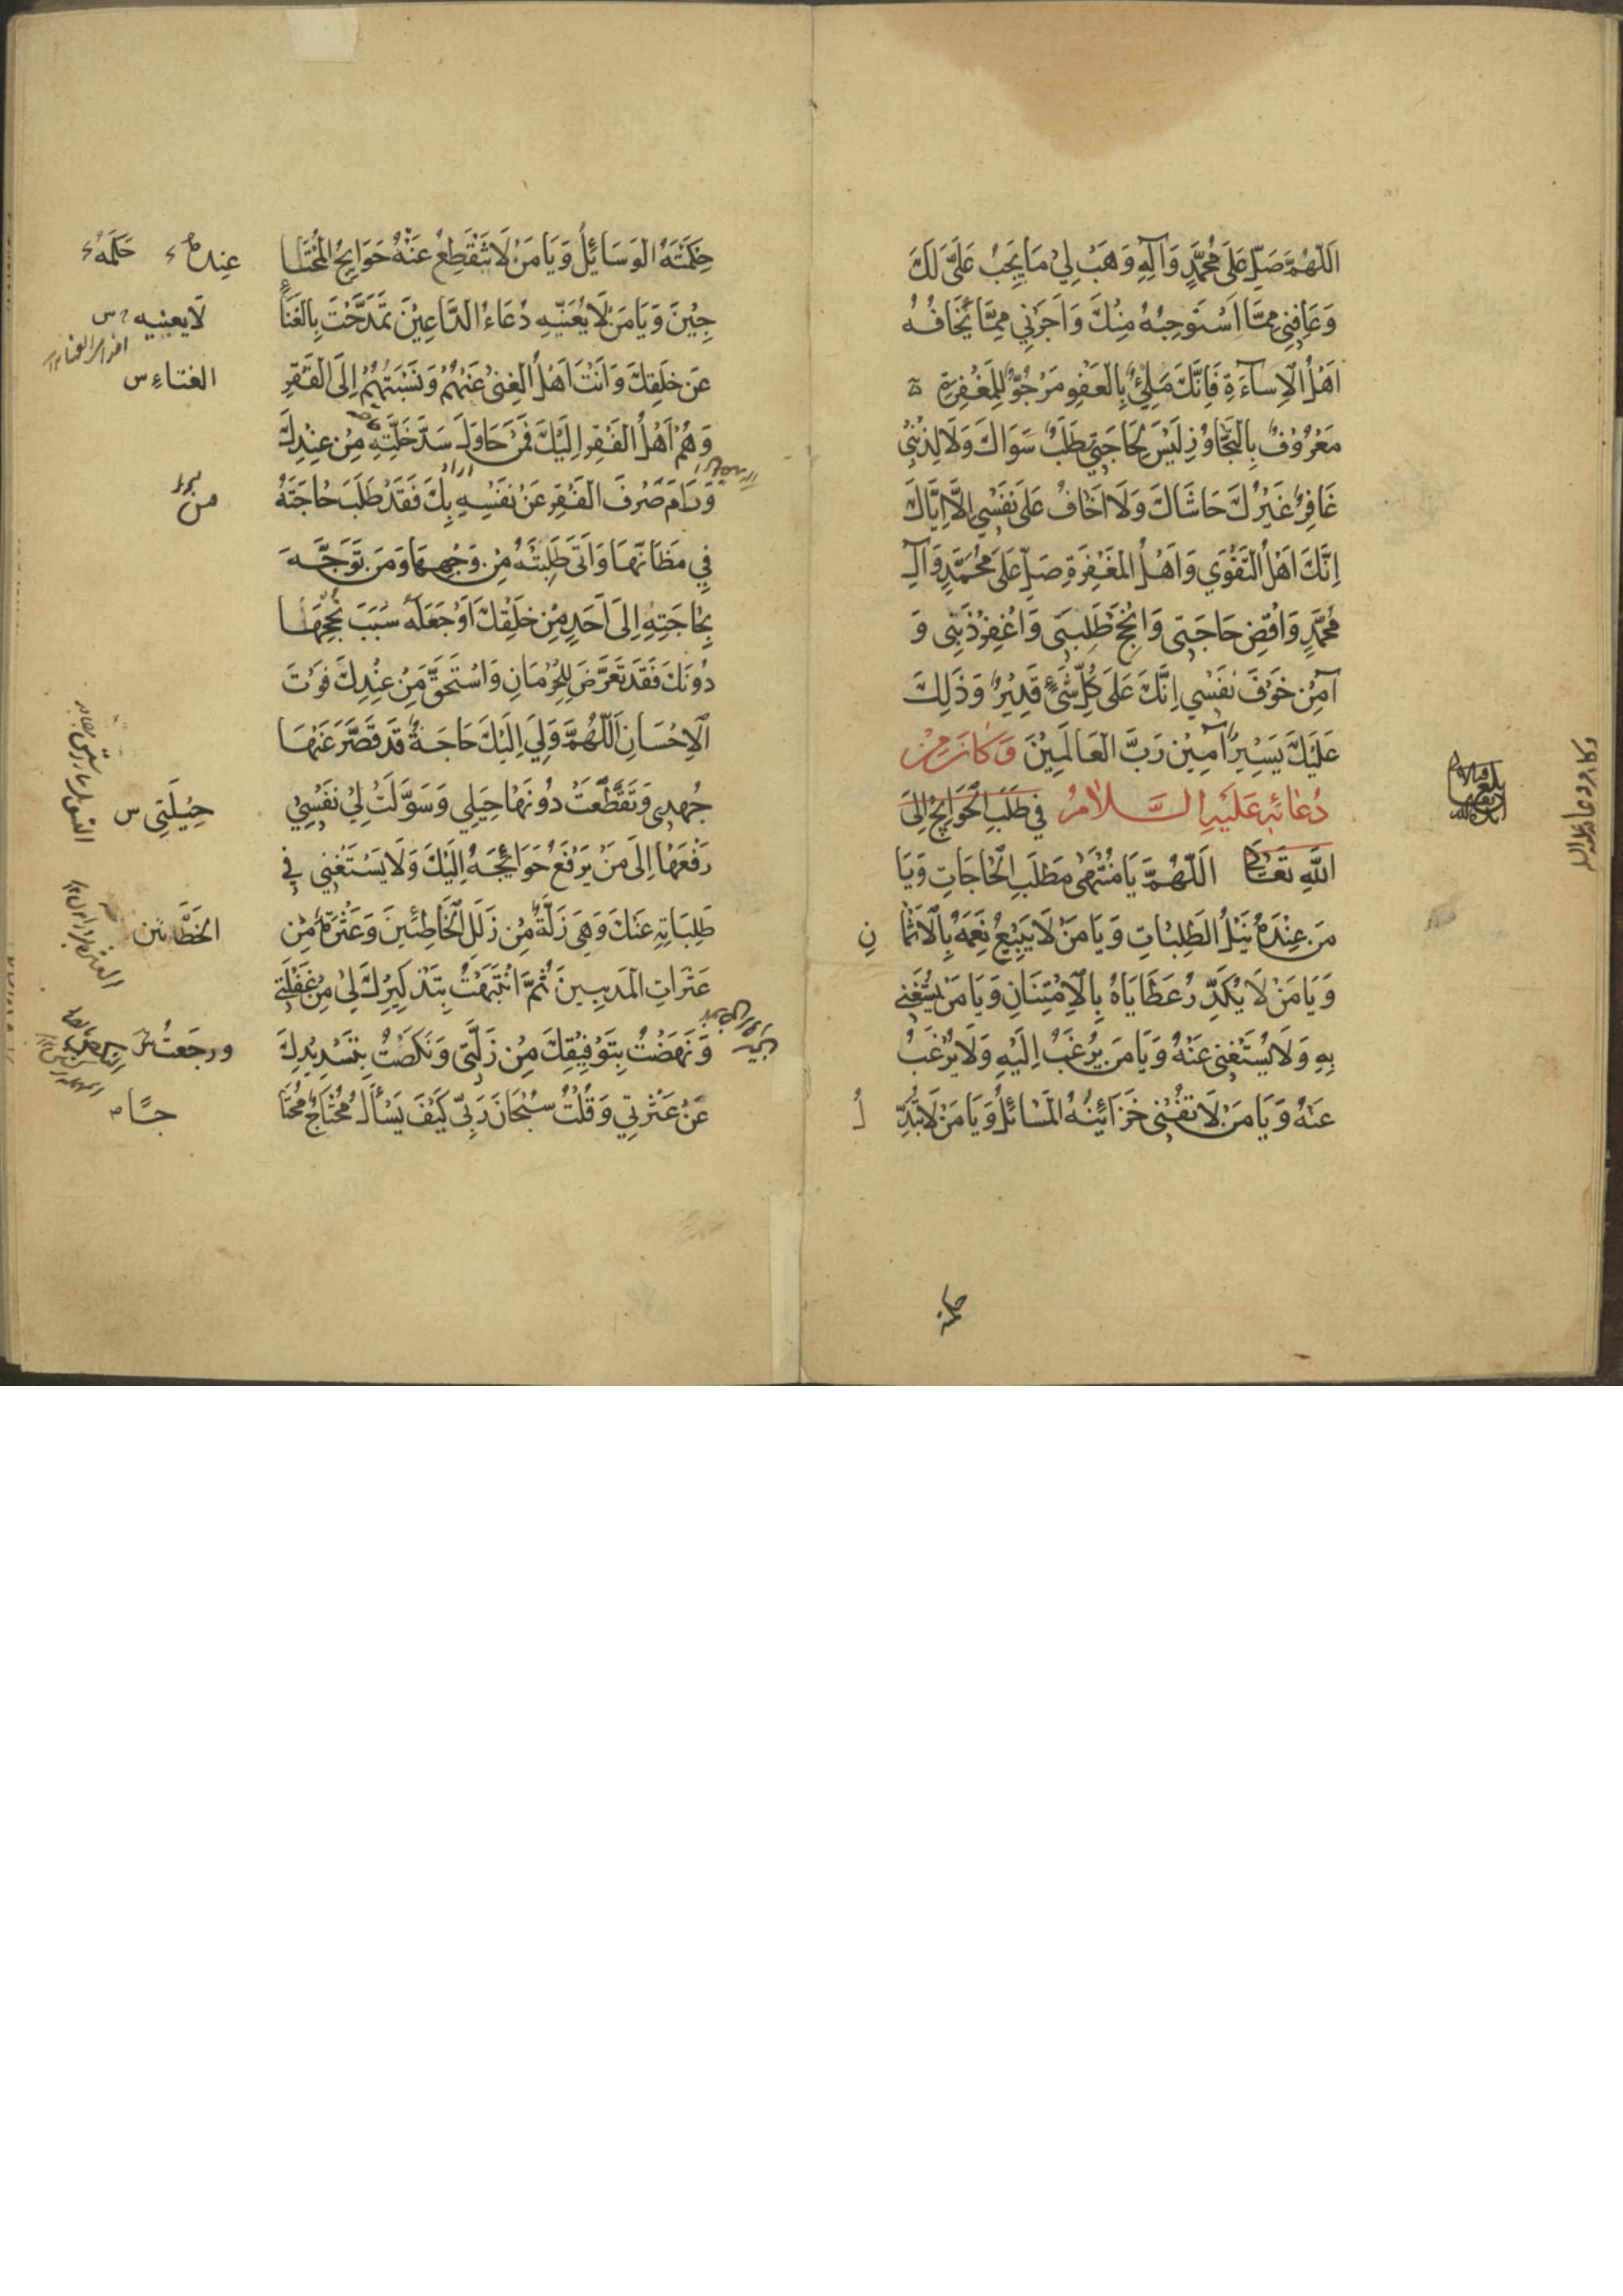 اَللّٰهُمَّ صَلِّ عَلَى مُحَمَّدٍ وَآلِهِ وَهَبْ لِي مَا يَجِبُ عَلَيَّ لَكَ
وَعَافِنِي مِمَّا اَسْتَوْجِبُهُ مِنْكَ وَاَجِرْنِي مِمَّا يَخَافُهُ
اَهْلُ الْاِسَاءَةِ فَاِنَّكَ مَلِيٌّ بِالْعَفْوِ مَرْجُوٌّ لِلْمَغْفِرَةِ
مَعْرُوفٌ بِالتَّجَاوُزِ لَيْسَ لِحَاجَتِي مَطْلَبٌ سِوَاكَ وَلَا لِذَنْبِي
غَافِرٌ غَيْرُكَ حَاشَاكَ وَلَا اَخَافُ عَلَى نَفْسِي اِلَّا اِيَّاكَ
اِنَّكَ اَهْلُ التَّقْوَى وَاَهْلُ الْمَغْفِرَةِ صَلِّ عَلَى مُحَمَّدٍ وَآلِ
مُحَمَّدٍ وَاقْضِ حَاجَتِي وَاَنْجِحْ طَلِبَتِي وَاغْفِرْ ذَنْبِي وَ
آمِنْ خَوْفَ نَفْسِي اِنَّكَ عَلَى كُلِّ شَيْءٍ قَدِيرٌ وَذَلِكَ
عَلَيْكَ يَسِيرٌ آمِينَ رَبَّ الْعَالَمِينَ وَكَانَ مِنْ
دُعَائِهِ عَلَيْهِ السَّلَامُ فِي طَلَبِ الْحَوَائِجِ اِلَى
اللّٰهِ تَعَالَى اَللّٰهُمَّ يَا مُنْتَهَى مَطْلَبِ الْحَاجَاتِ وَيَا
مَنْ عِنْدَهُ نَيْلُ الطَّلِبَاتِ وَيَا مَنْ لَا يَبِيعُ نِعَمَهُ بِالْاَثْمَانِ
وَيَا مَنْ لَا يُكَدِّرُ عَطَايَاهُ بِالْاِمْتِنَانِ وَيَا مَنْ يُسْتَغْنَى
بِهِ وَلَا يُسْتَغْنَى عَنْهُ وَيَا مَنْ يُرْغَبُ اِلَيْهِ وَلَا يُرْغَبُ
عَنْهُ وَيَا مَنْ لَا تُفْنِي خَزَائِنَهُ الْمَسَائِلُ وَيَا مَنْ لَا تُبَدِّلُ
حكمته
حِكْمَتَهُ الْوَسَائِلُ وَيَا مَنْ لَا تَنْقَطِعُ عَنْهُ حَوَائِجُ الْمُحْتَا
جِينَ وَيَا مَنْ لَا يُعَنِّيهِ دُعَاءُ الدَّاعِينَ تَمَدَّحْتَ بِالْغَنَاءِ
عَنْ خَلْقِكَ وَاَنْتَ اَهْلُ الْغِنَى عَنْهُمْ وَنَسَبْتَهُمْ اِلَى الْفَقْرِ
وَهُمْ اَهْلُ الْفَقْرِ اِلَيْكَ فَمَنْ حَاوَلَ سَدَّ خَلَّتِهِ مِنْ عِنْدِكَ
وَرَامَ صَرْفَ الْفَقْرِ عَنْ نَفْسِهِ بِكَ فَقَدْ طَلَبَ حَاجَتَهُ
فِي مَظَانِّهَا وَاَتَى طَلِبَتَهُ مِنْ وَجْهِهَا وَمَنْ تَوَجَّهَ
بِحَاجَتِهِ اِلَى اَحَدٍ مِنْ خَلْقِكَ اَوْ جَعَلَهُ سَبَبَ نُجْحِهَا
دُونَكَ فَقَدْ تَعَرَّضَ لِلْحِرْمَانِ وَاسْتَحَقَّ مِنْ عِنْدِكَ فَوْتَ
الْاِحْسَانِ اَللّٰهُمَّ وَلِي اِلَيْكَ حَاجَةٌ قَدْ قَصَّرَ عَنْهَا
جُهْدِي وَتَقَطَّعَتْ دُونَهَا حِيَلِي وَسَوَّلَتْ لِي نَفْسِي
رَفْعَهَا اِلَى مَنْ يَرْفَعُ حَوَائِجَهُ اِلَيْكَ وَلَا يَسْتَغْنِي فِي
طَلِبَاتِهِ عَنْكَ وَهِيَ زَلَّةٌ مِنْ زَلَلِ الْخَاطِئِينَ وَعَثْرَةٌ مِنْ
عَثَرَاتِ الْمُذْنِبِينَ ثُمَّ انْتَبَهْتُ بِتَذْكِيرِكَ لِي مِنْ غَفْلَتِي
وَنَهَضْتُ بِتَوْفِيقِكَ مِنْ زَلَّتِي وَنَكَصْتُ بِتَسْدِيدِكَ
عَنْ عَثْرَتِي وَقُلْتُ سُبْحَانَ رَبِّي كَيْفَ يَسْأَلُ مُحْتَاجٌ مُحْتَا
عِنده حِكَمَهُ
لَا يعييه س
الغناء س
من
حِيْلَتِي س
الخطائين
ورجعت س
جًا